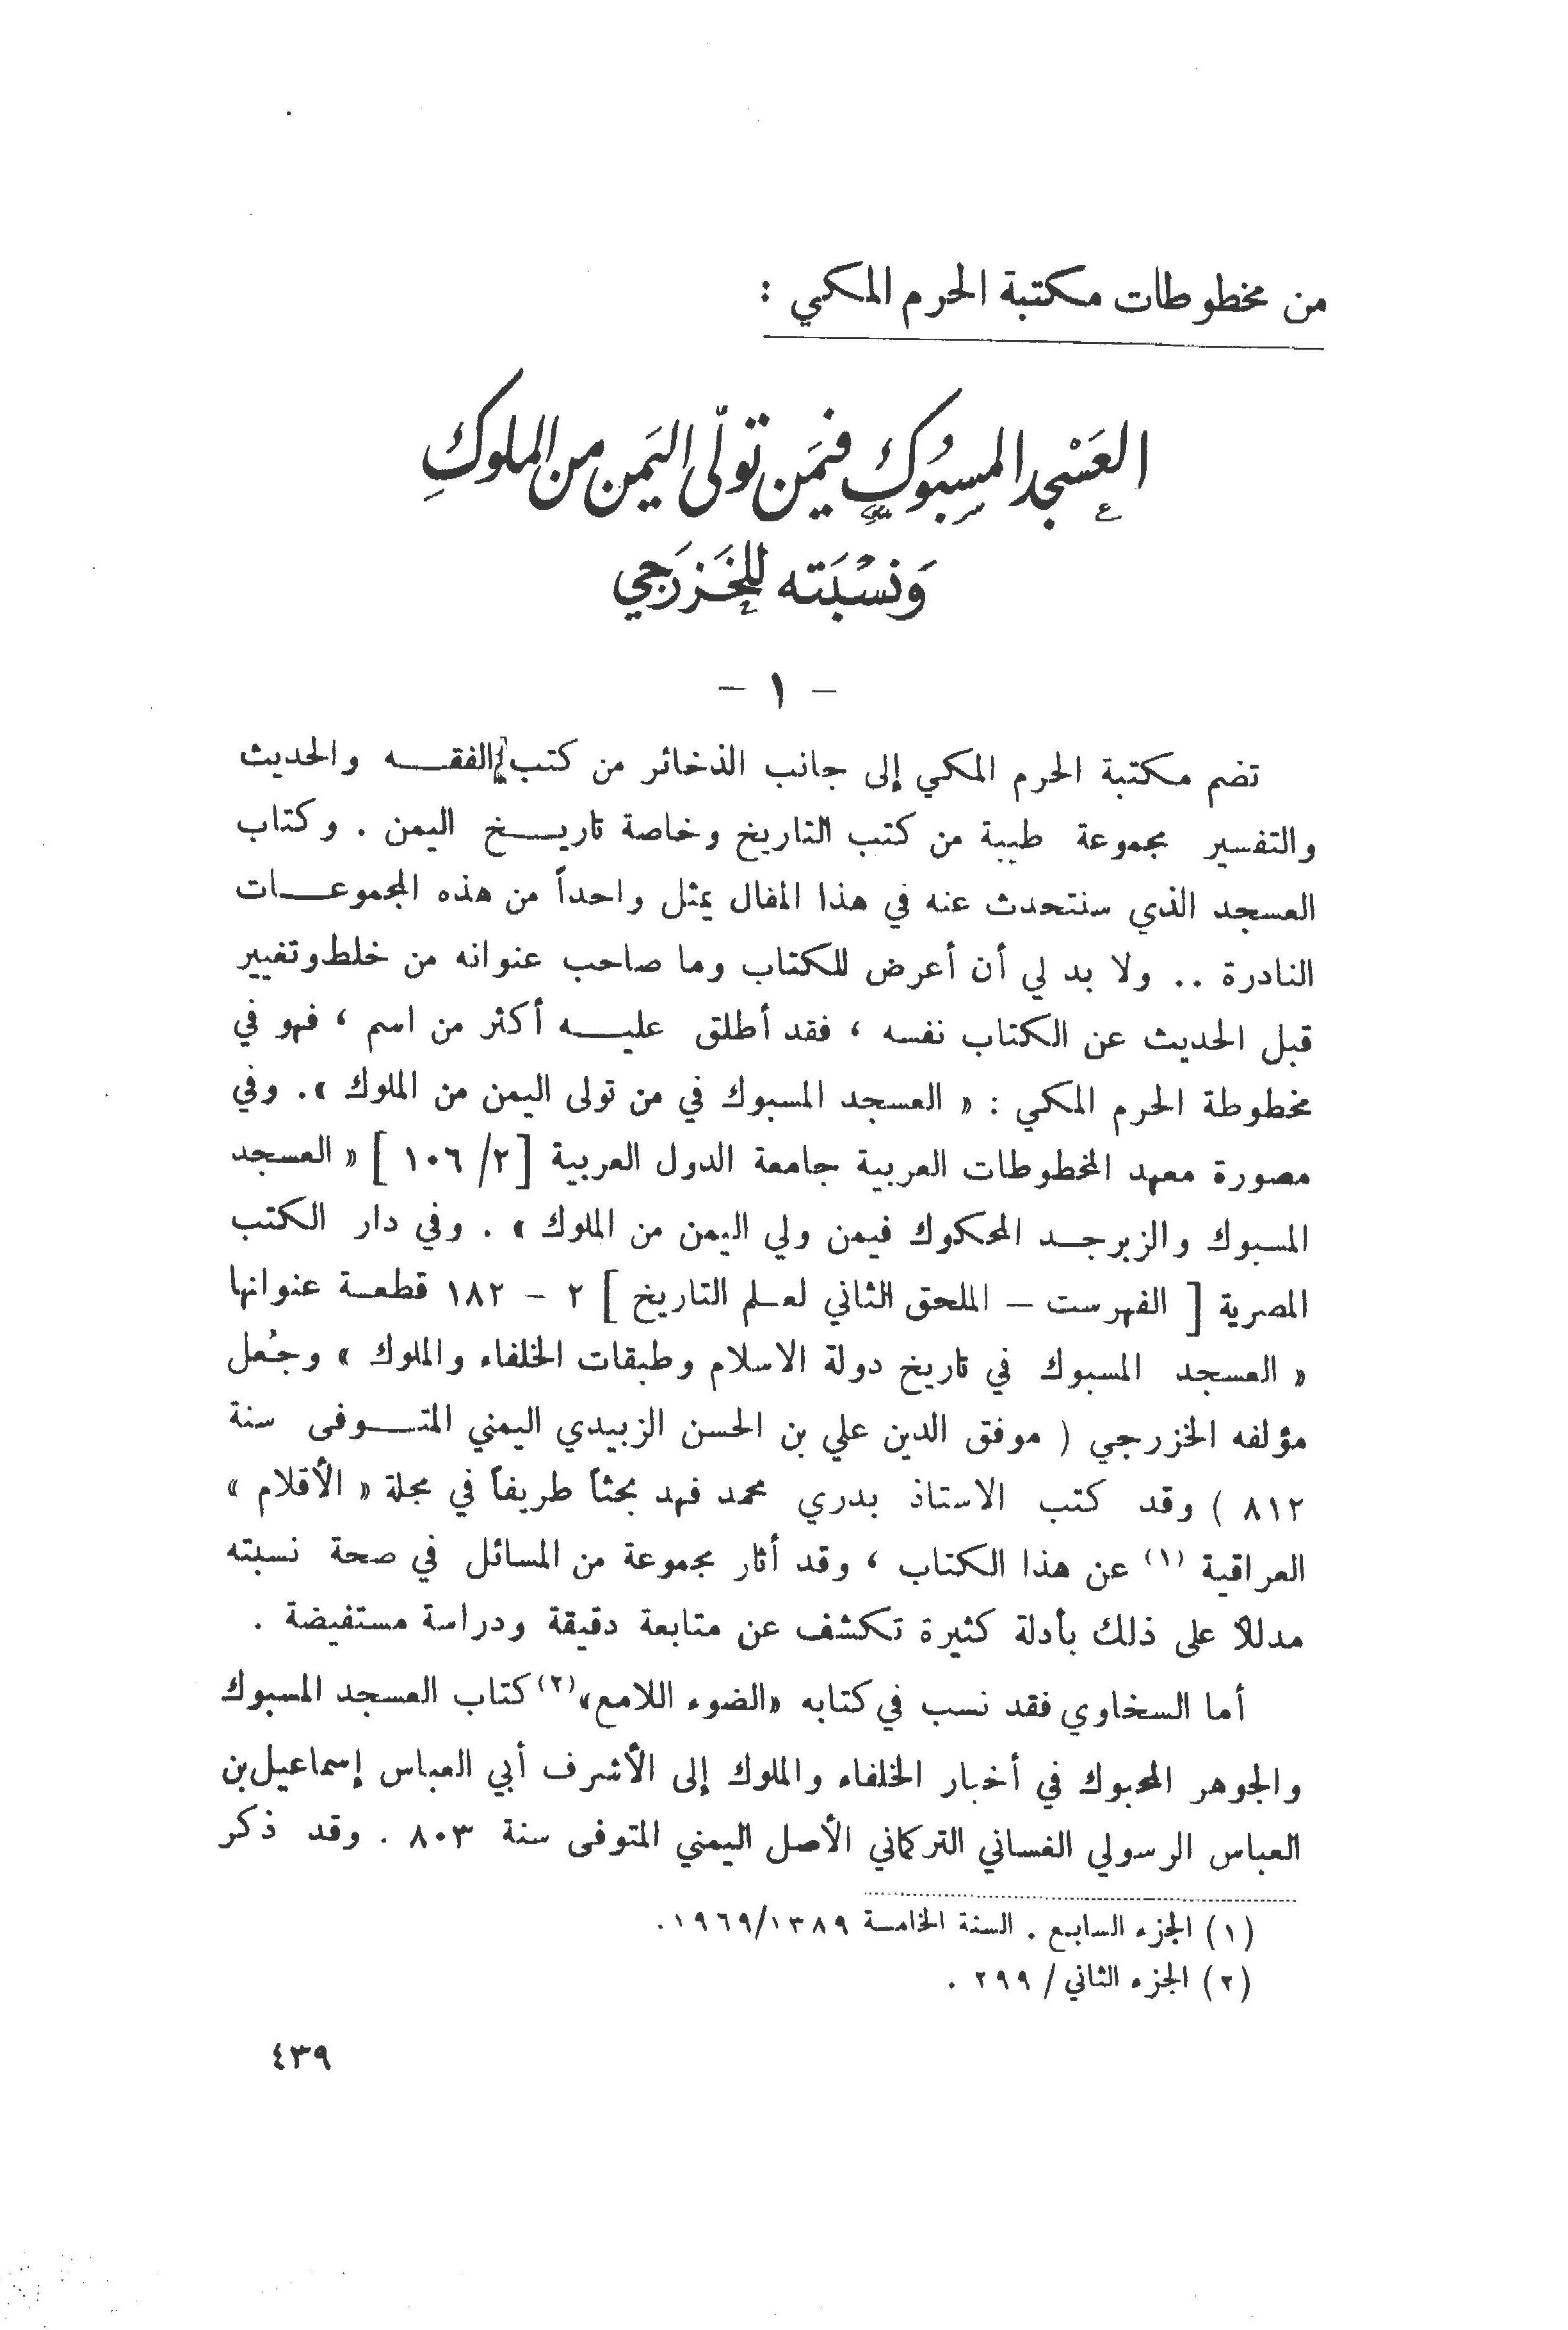 من مخطوطات مكتبة الحرم المكي :
العَسْجد المسبُوك فيمَن تولّى اليَمن من الملوكِ
وَنسْبَته للخَزرَجي
- ١ -
تضم مكتبة الحرم المكي إلى جانب الذخائر من كتب الفقه والحديث
والتفسير مجموعة طيبة من كتب التاريخ وخاصة تاريخ اليمن . وكتاب
العسجد الذي سنتحدث عنه في هذا المقال يمثل واحداً من هذه المجموعات
النادرة .. ولا بد لي أن أعرض للكتاب وما صاحب عنوانه من خلط وتغيير
قبل الحديث عن الكتاب نفسه ، فقد أطلق عليه أكثر من اسم ، فهو في
مخطوطة الحرم المكي : « العسجد المسبوك في من تولى اليمن من الملوك ». وفي
مصورة معهد المخطوطات العربية جامعة الدول العربية [٢/ ١٠٦ ] « العسجد
المسبوك والزبرجد المحكوك فيمن ولي اليمن من الملوك » . وفي دار الكتب
المصرية [ الفهرست – الملحق الثاني لعلم التاريخ ] ٢ – ١٨٢ قطعة عنوانها
« العسجد المسبوك في تاريخ دولة الاسلام وطبقات الخلفاء والملوك » وجُعل
مؤلفه الخزرجي ( موفق الدين علي بن الحسن الزبيدي اليمني المتوفى سنة
٨١٢ ) وقد كتب الاستاذ بدري محمد فهد بحثاً طريفاً في مجلة « الأقلام »
العراقية (١) عن هذا الكتاب ، وقد أثار مجموعة من المسائل في صحة نسبته
مدللا على ذلك بأدلة كثيرة تكشف عن متابعة دقيقة ودراسة مستفيضة .
أما السخاوي فقد نسب في كتابه «الضوء اللامع»(٢) كتاب العسجد المسبوك
والجوهر المحبوك في أخبار الخلفاء والملوك إلى الأشرف أبي العباس إسماعيل بن
العباس الرسولي الغساني التركماني الأصل اليمني المتوفى سنة ٨٠٣ . وقد ذكر
(١) الجزء السابع . السنة الخامسة ١٩٦٩/١٣٨٩.
(٢) الجزء الثاني / ٢٩٩ .
٤٣٩